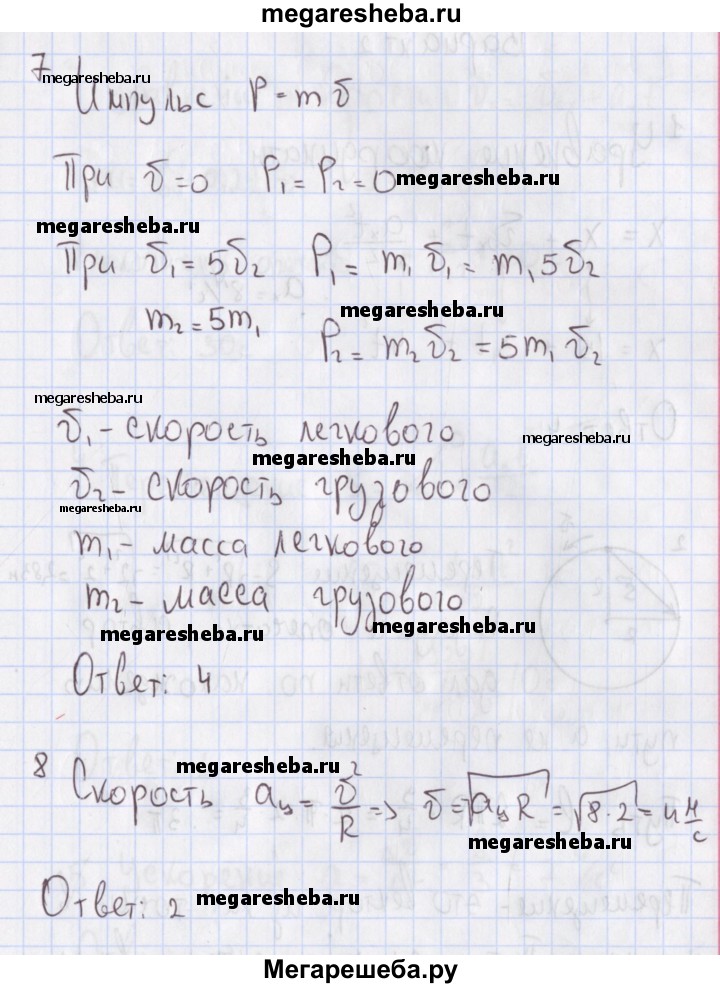 megaresheba.ru
7 megaresheba.ru
Импульс P = m v
При v = 0 P₁ = P₂ = 0 megaresheba.ru
megaresheba.ru
При v₁ = 5v₂ P₁ = m₁ v₁ = m₁ 5v₂
megaresheba.ru
m₂ = 5m₁ P₂ = m₂ v₂ = 5m₁ v₂
megaresheba.ru
v₁ - скорость легкового megaresheba.ru
megaresheba.ru
v₂ - скорость грузового
megaresheba.ru
m₁ - масса легкового
m₂ - масса грузового
megaresheba.ru megaresheba.ru
Ответ: 4
8 megaresheba.ru
Скорость aц = v²/R => v = √aцR = √8·2 = 4 м/с
megaresheba.ru
Ответ: 2 megaresheba.ru
Мегарешеба.ру